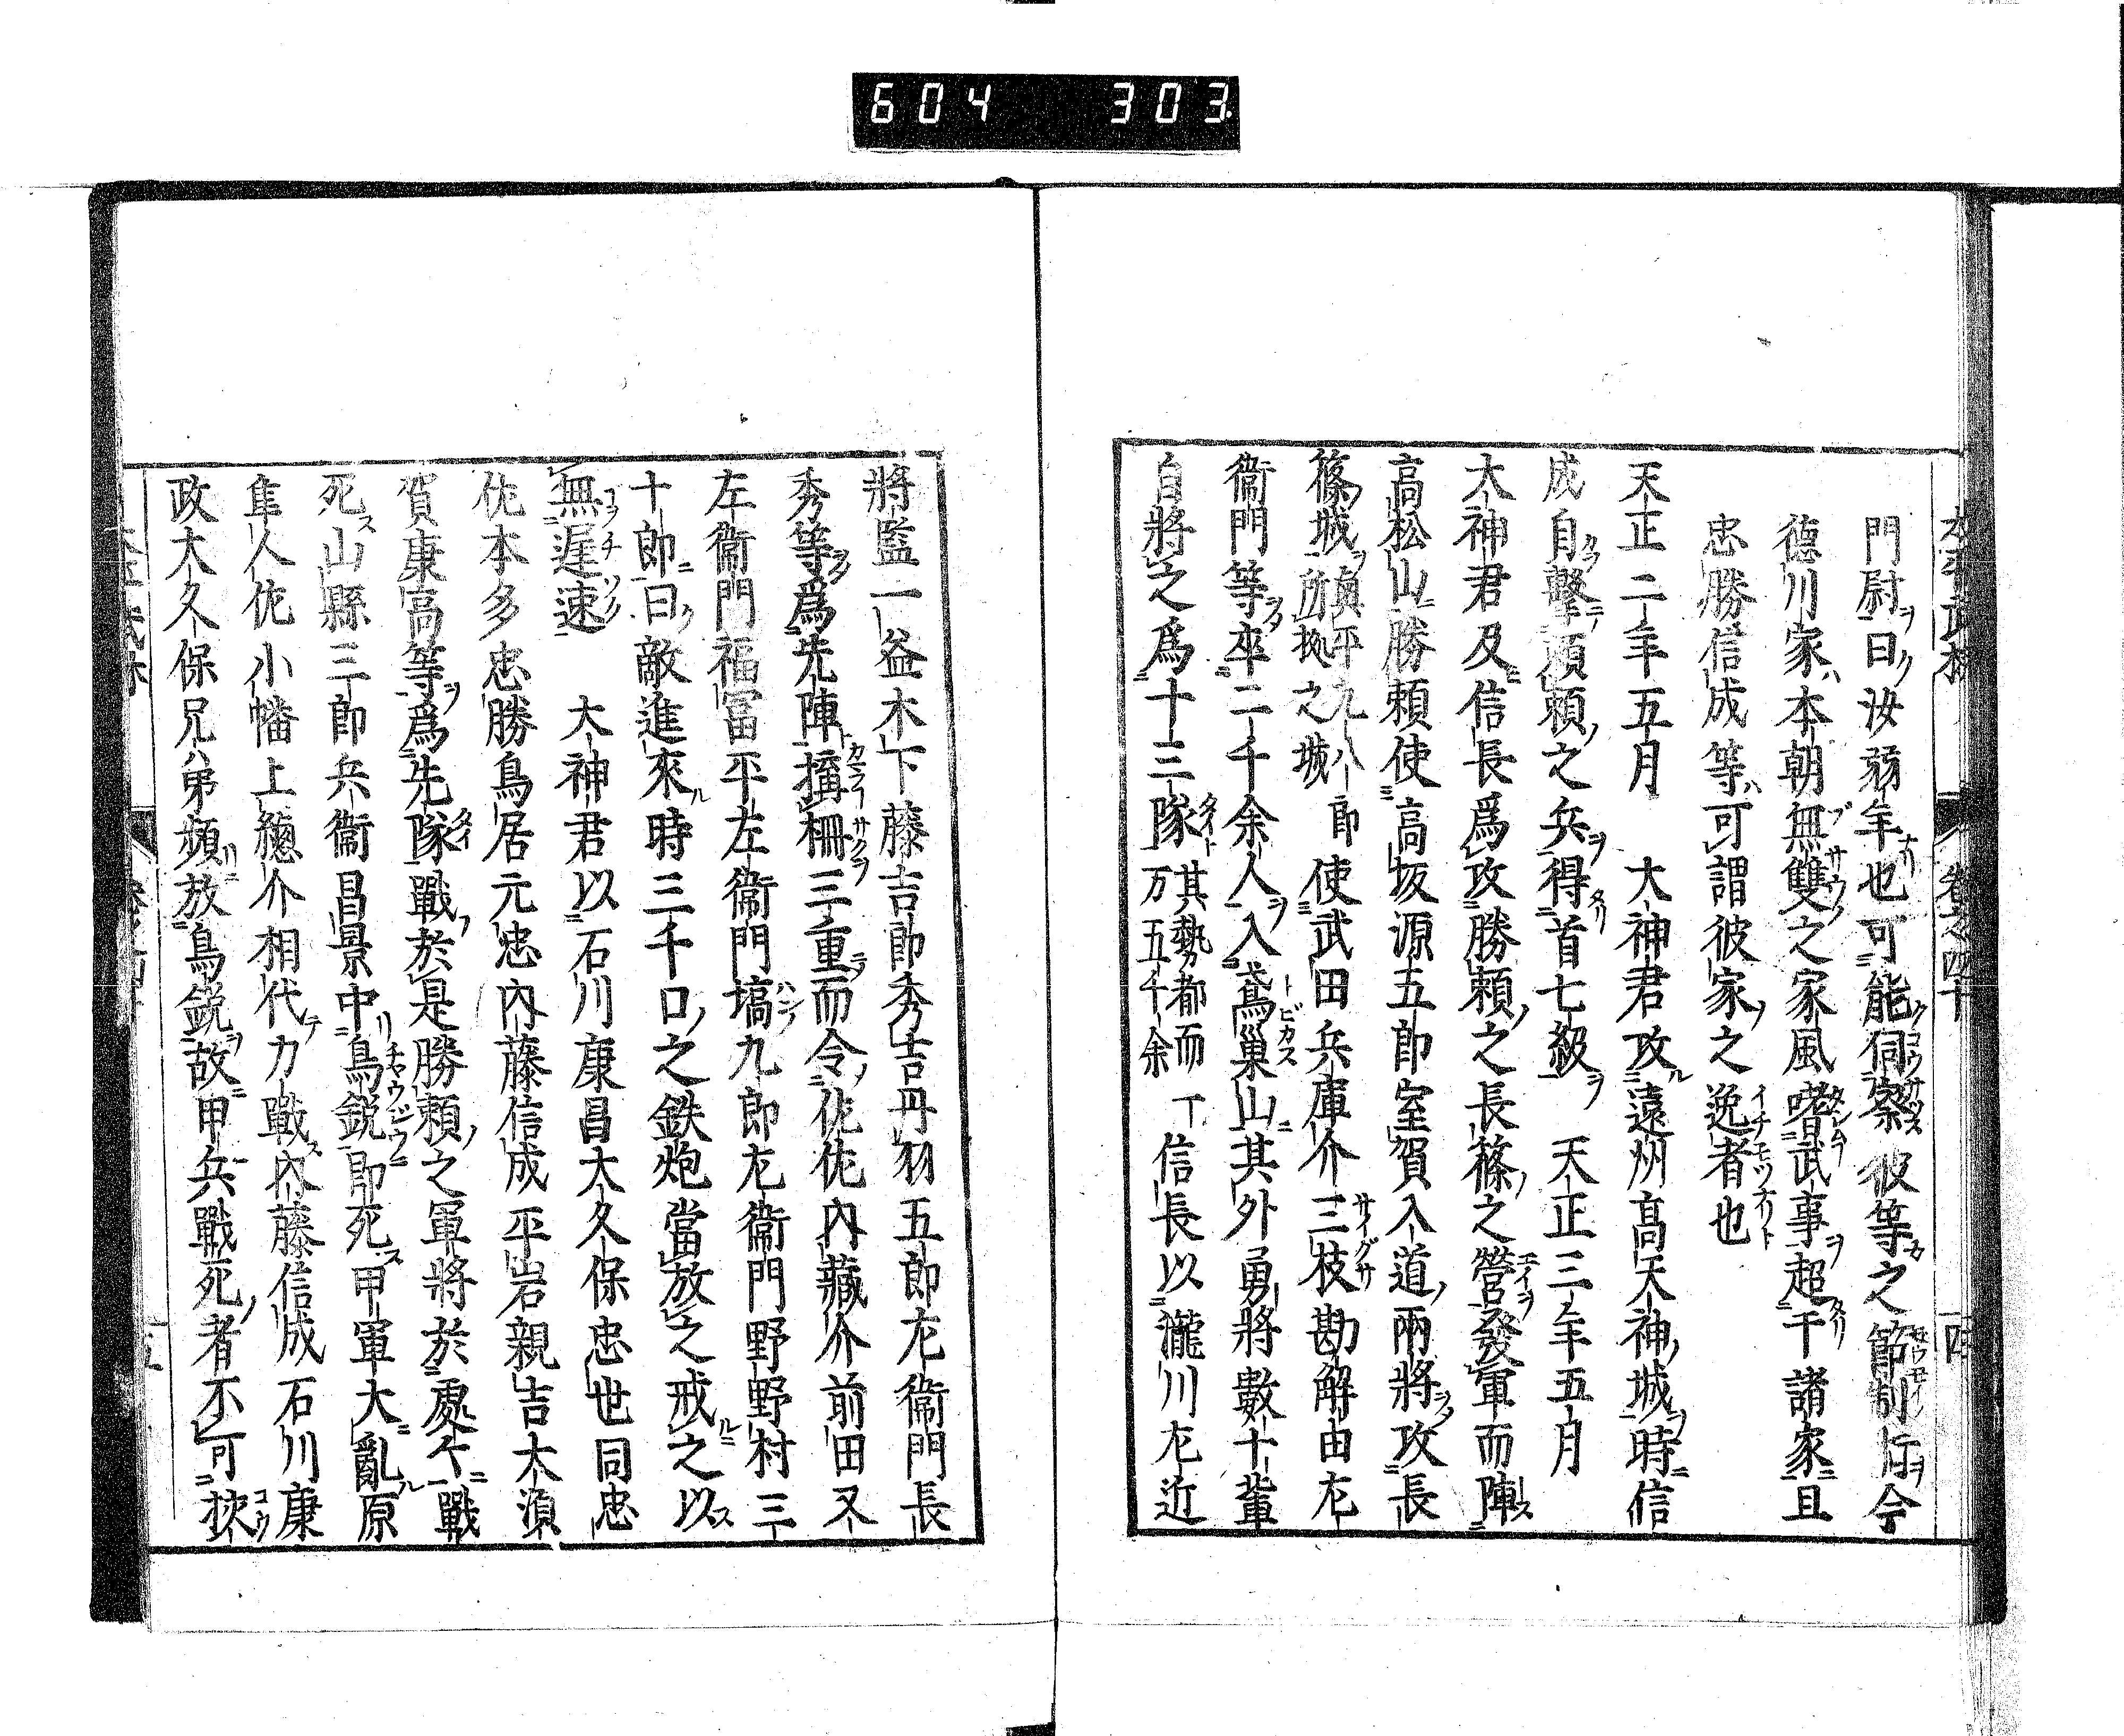 604 303
門尉曰汝弱年也可能伺察彼等之節制行今
德川家本朝無雙之家風嗜武事超于諸家且
忠勝信成等可謂彼家之逸者也
天正二年五月 大神君攻遠州高天神城時信
成自擊項頼之兵得首七級 天正三年五月
大神君及信長爲攻勝頼之長篠之營發軍而陣
高松山勝頼使高坂源五郎室賀入道兩將攻長
篠城眞平九八郎所拠之城 使武田兵庫介三枝勘解由左
衞門等卒二千余人入鳶巢山其外勇將數十輩
自將之爲十三隊其勢都而一万五千余 信長以瀧川左近
將監一益木下藤吉郎秀吉丹羽五郎左衞門長
秀等爲先陣搆柵三重而令佐佐内藏介前田又
左衞門福冨平左衞門塙九郎左衞門野野村三
十郎曰敵進來時三千口之鉄炮當放之戒之以
無遲速 大神君以石川康昌大久保忠世同忠
佐本多忠勝鳥居元忠内藤信成平岩親吉大湏
賀康高等爲先隊戰於是勝頼之軍將於處々戰
死山縣三郎兵衞昌景中鳥銃即死甲軍大亂原
隼人佐小幡上總介相代力戰内藤信成石川康
政大久保兄弟頻放鳥銃故甲兵戰死者不可挍